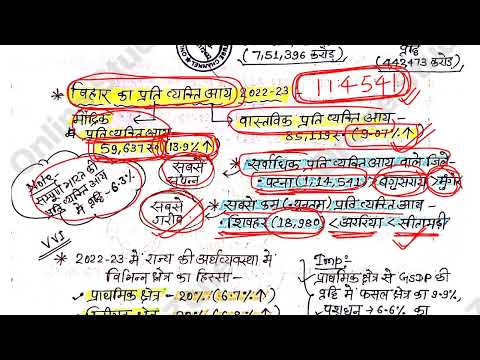 (7,51,396 करोड़)
वृद्धि
(442473 करोड़)
* बिहार का प्रति व्यक्ति आय 2022-23 - 114541
मौद्रिक प्रति व्यक्ति आय
59,637 रु० (13.9% ↑)
वास्तविक प्रति व्यक्ति आय -
35,119 रु० (9.07% ↑)
Note:-
सम्पूर्ण भारत की
वृद्धि व्यक्ति आय
में वृद्धि - 6.3%
VVI
सबसे
संपन्न
* सर्वाधिक प्रति व्यक्ति आय वाले जिले-
- पटना (1,14,541) > बेगूसराय > मुंगेर
सबसे
गरीब
* सबसे कम (न्यूनतम) प्रति व्यक्ति आय -
शिवहर (18,980) < अररिया < सीतामढ़ी
* 2022-23 में राज्य की अर्थव्यवस्था में
विभिन्न क्षेत्र का हिस्सा -
• प्राथमिक क्षेत्र - 20% (6.7% ↑)
Imp:-
प्राथमिक क्षेत्र से GSDP की
वृद्धि में फसल क्षेत्र का 9.9%
पशुधन → 6.6% का